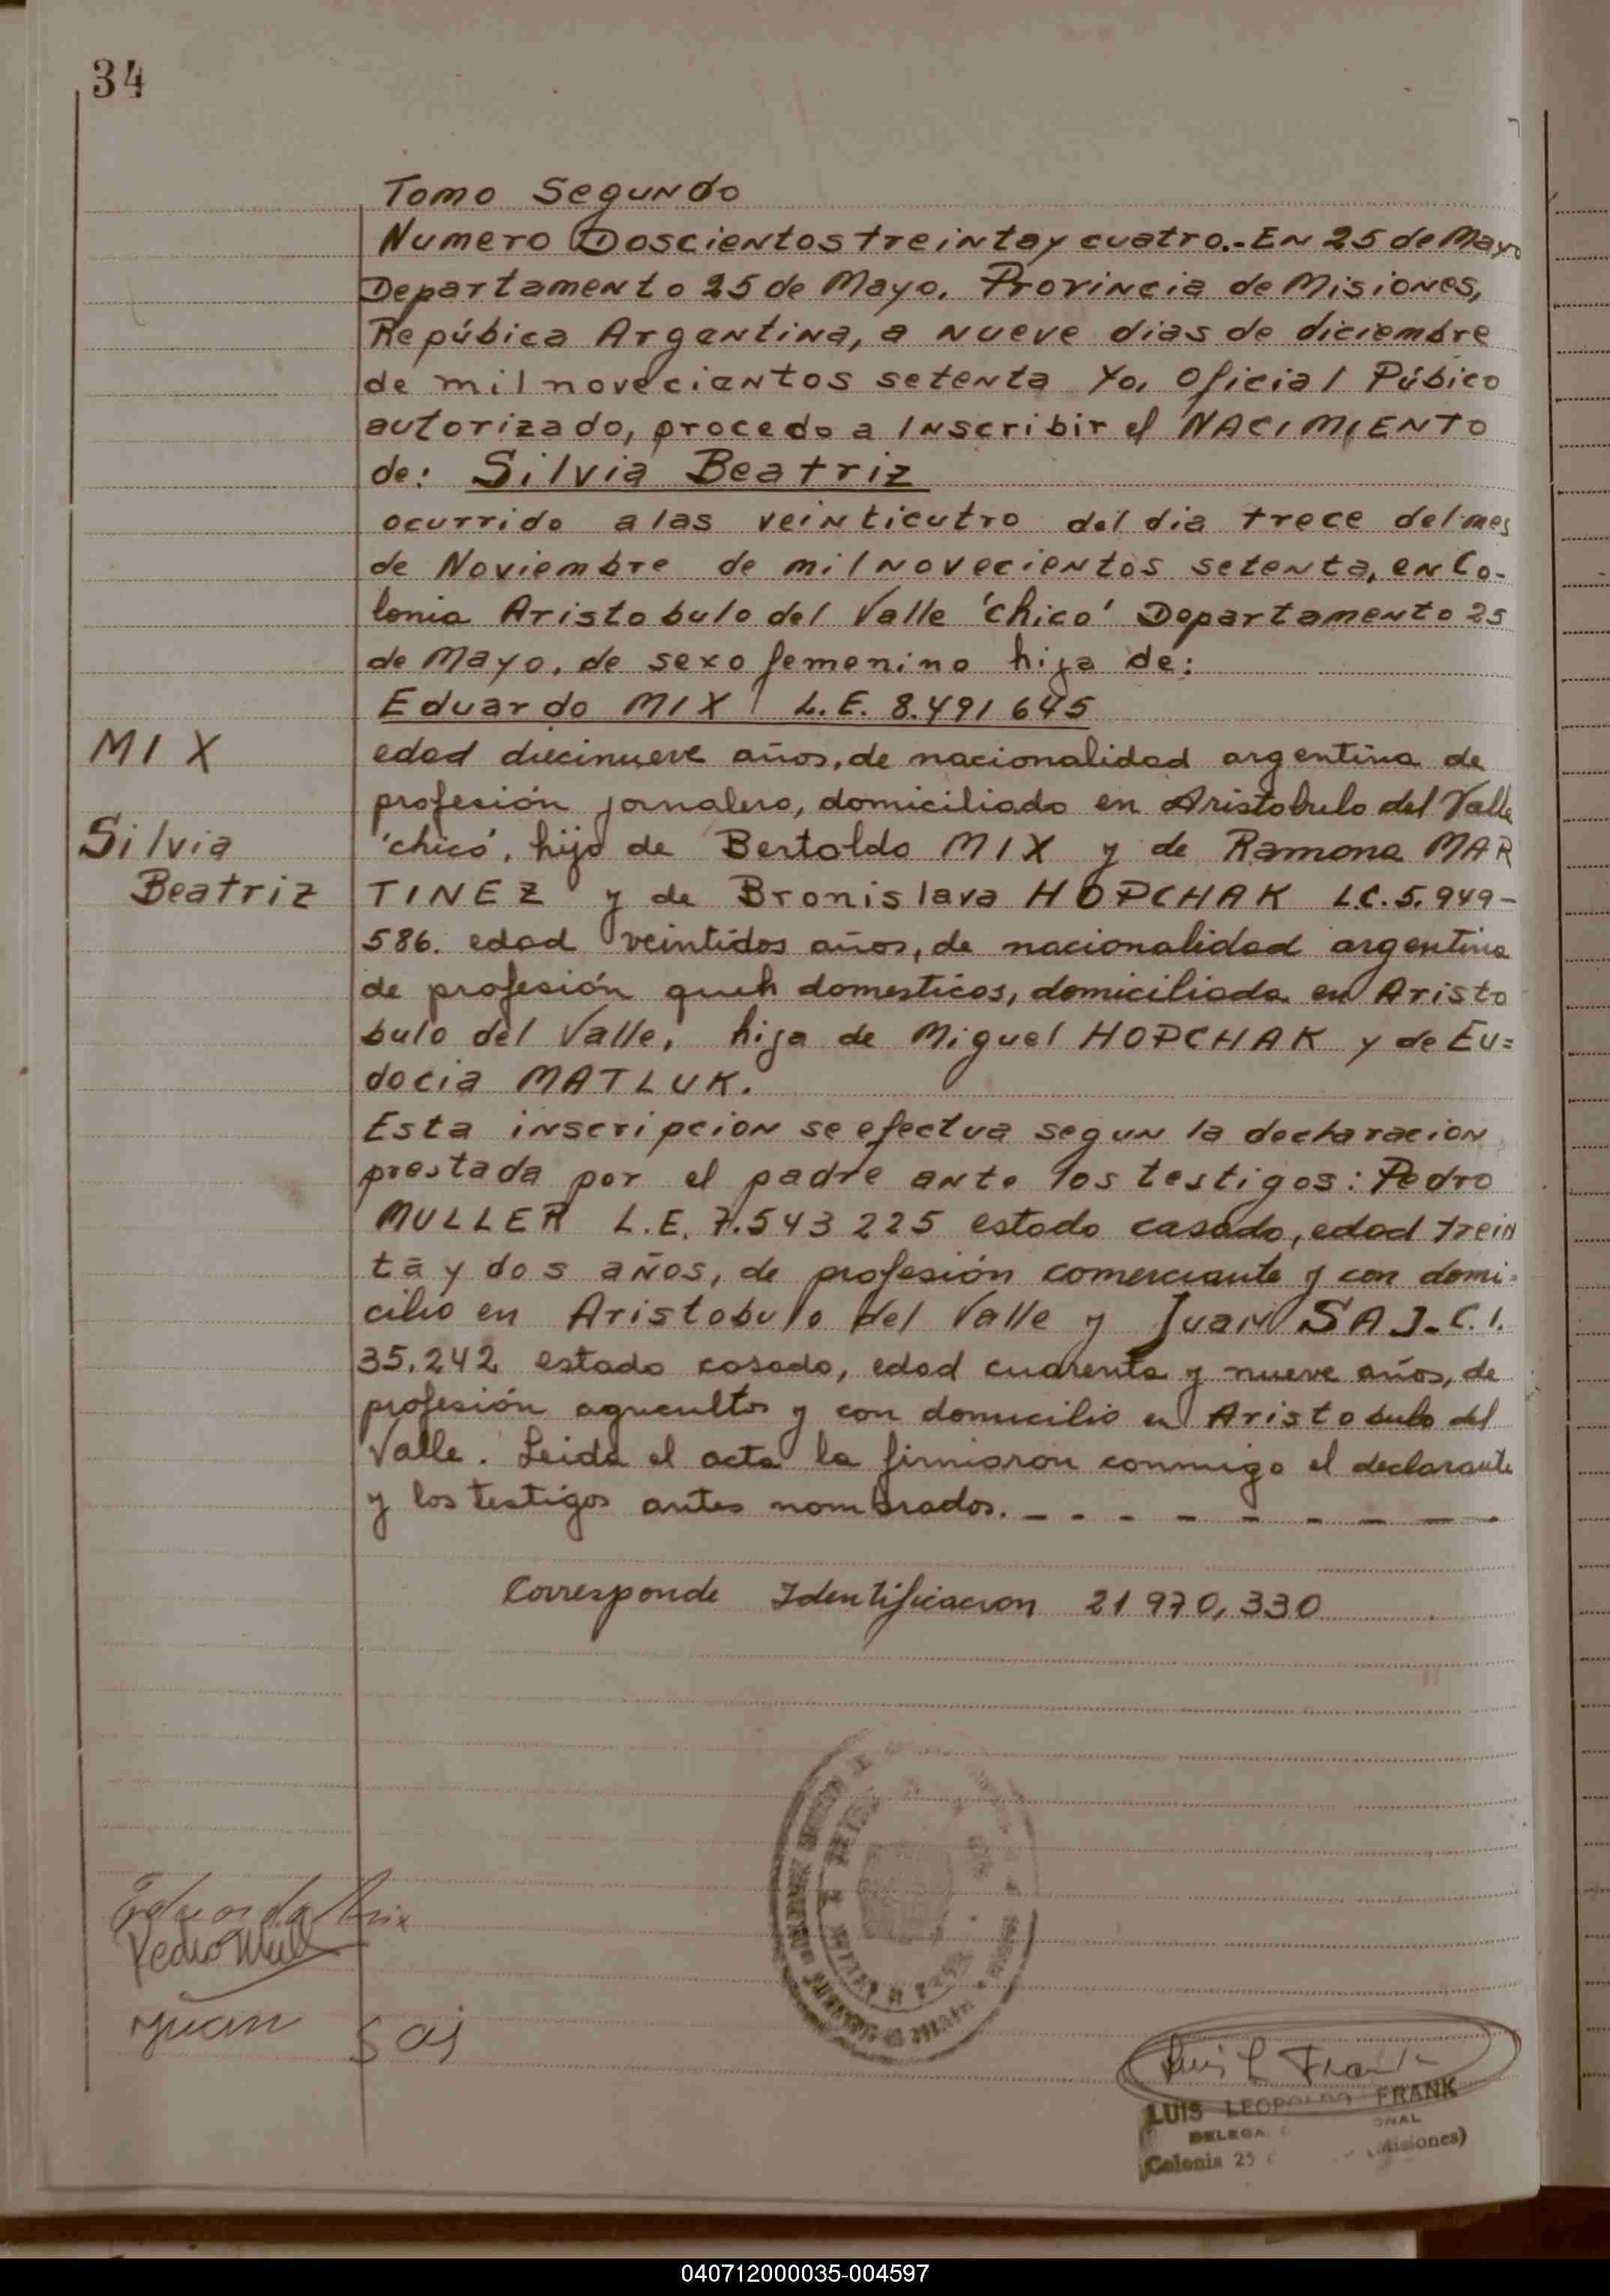 34
Tomo Segundo
Numero Doscientos treinta y cuatro.- En 25 de Mayo
Departamento 25 de Mayo, Provincia de Misiones,
Repúbica Argentina, a nueve dias de diciembre
de mil novecientos setenta Yo, Oficial Púbico
autorizado, procedo a Inscribir el NACIMIENTO
de: Silvia Beatriz
ocurrido a las veinticutro del dia trece del mes
de Noviembre de mil novecientos setenta, en Co-
lonia Aristobulo del Valle 'chico' Departamento 25
de Mayo, de sexo femenino hija de:
Eduardo MIX L.E. 8.491645
MIX
edad diecinueve años, de nacionalidad argentina de
profesión jornalero, domiciliado en Aristobulo del Valle
Silvia
'chico', hijo de Bertoldo MIX y de Ramona MAR
Beatriz
TINEZ y de Bronislava HOPCHAK L.C. 5.949-
586. edad veintidos años, de nacionalidad argentina
de profesión domesticos, domiciliada en Aristo
bulo del Valle, hija de Miguel HOPCHAK y de Eu=
docia MATLUK.
Esta inscripcion se efectua segun la declaracion
prestada por el padre ante los testigos: Pedro
MULLER L.E. 7.543225 estado casado, edad trein
ta y dos años, de profesión comerciante y con domi=
cilio en Aristobulo del Valle y Juan SAJ- C.I.
35.242 estado casado, edad cuarenta y nueve años, de
profesión agricultor y con domicilio en Aristobulo del
Valle. Leida el acta la firmaron conmigo el declarante
y los testigos antes nombrados. - - - - - - - - -
Corresponde Identificacion 21 970,330
Eduardo Mix
Pedro Mull
Juan Saj
Luis L Frank
LUIS LEOPOLDO FRANK
Colonia 25 (Misiones)
040712000035-004597